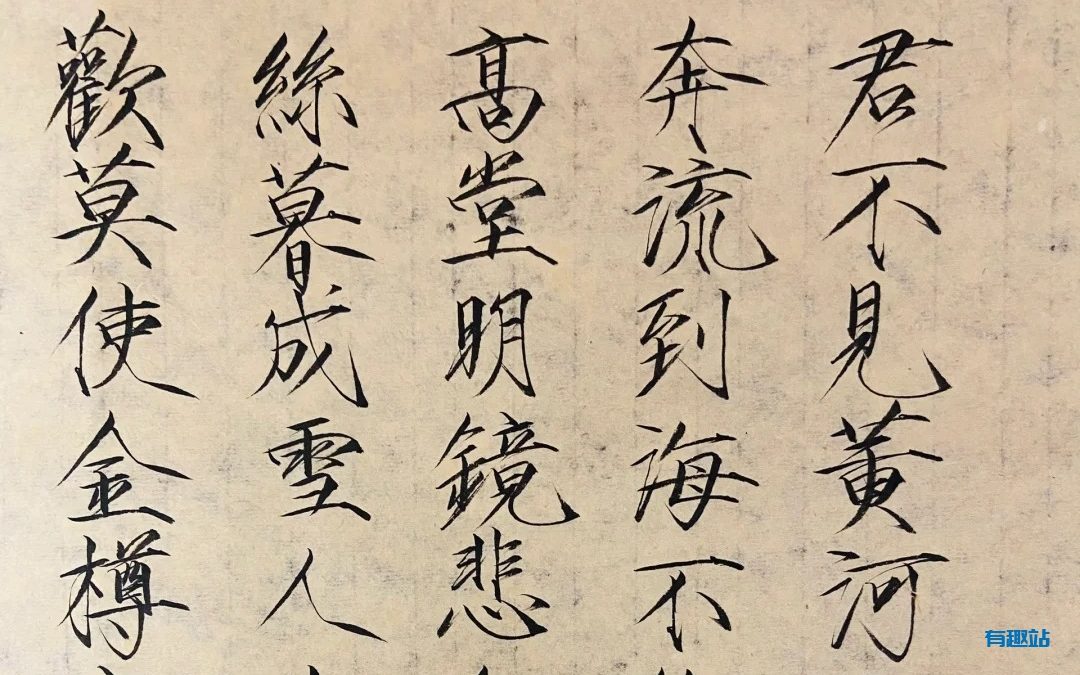 君不見黄河
奔流到海不
髙堂明鏡悲
絲暮成雪人
歡莫使金樽
有趣站